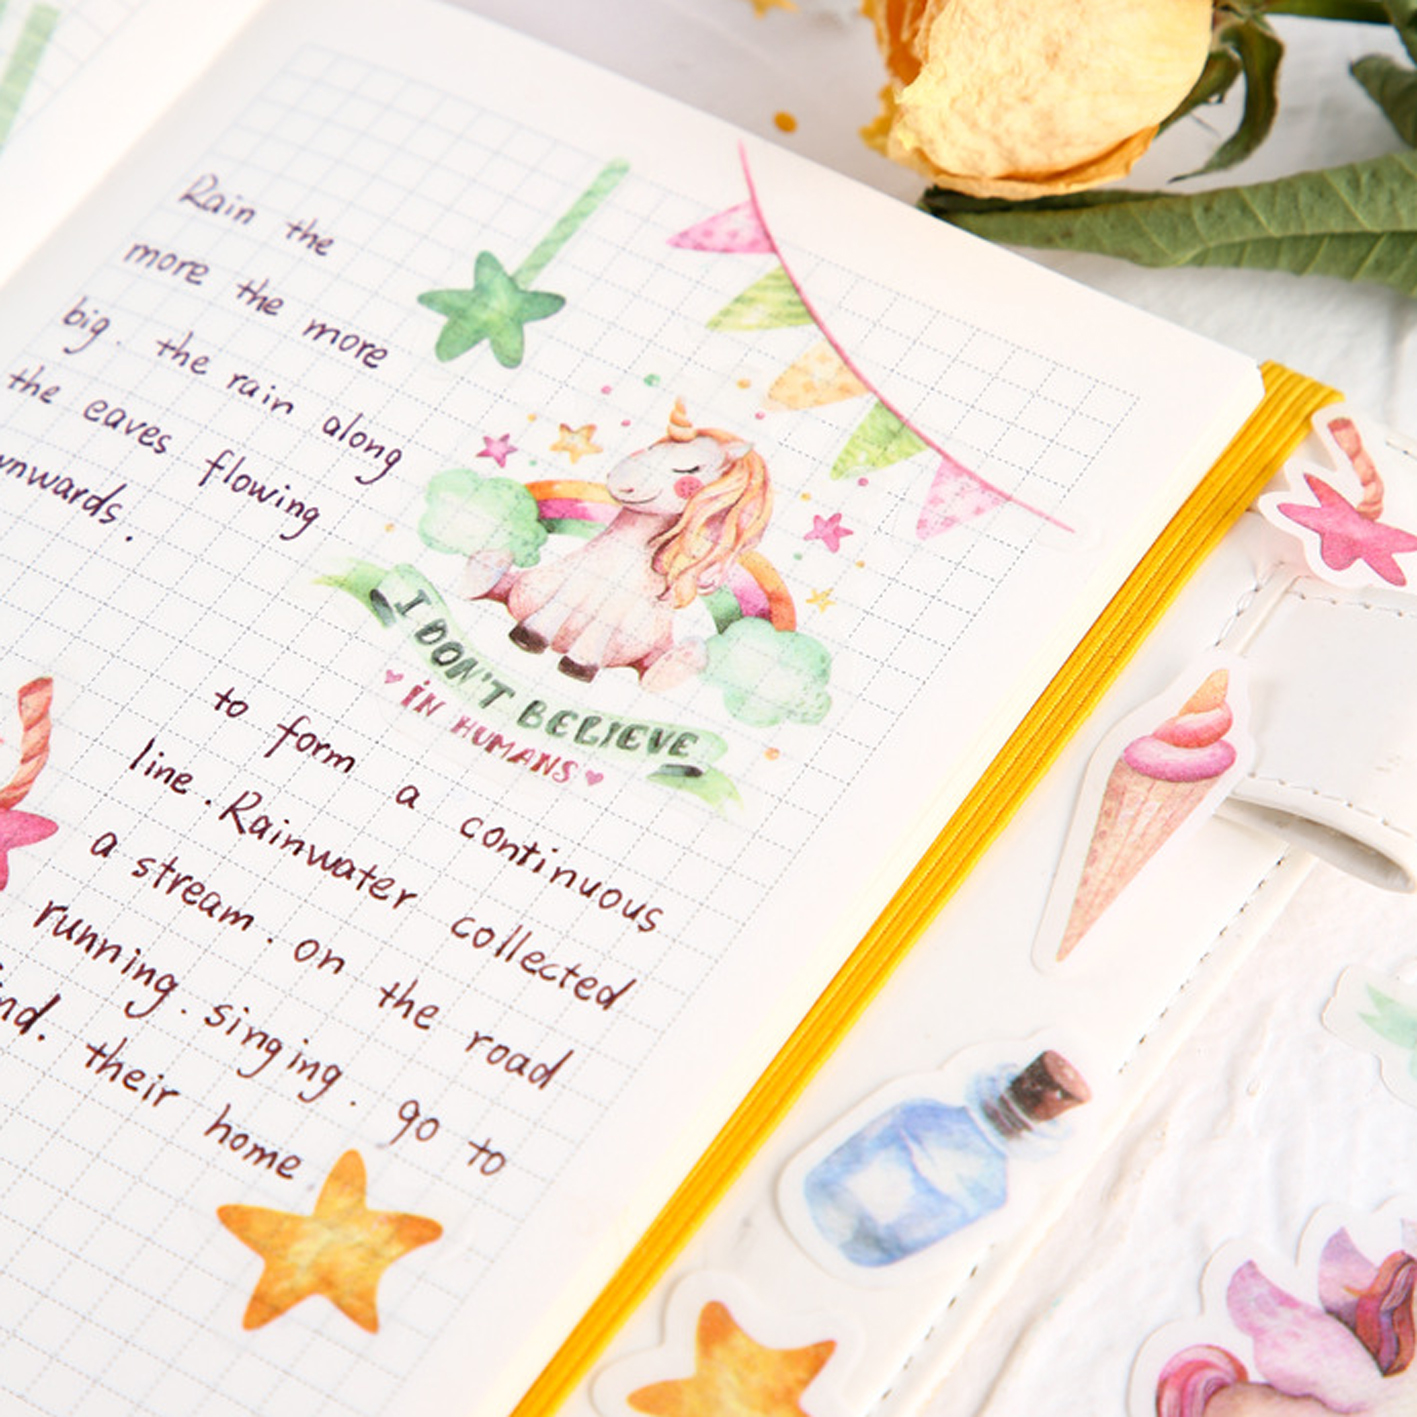 Rain the
more the more
big. the rain along
the eaves flowing
wnwards.
I DON'T BELIEVE
IN HUMANS
to form a continuous
line. Rainwater collected
a stream. on the road
running. singing. go to
nd. their home